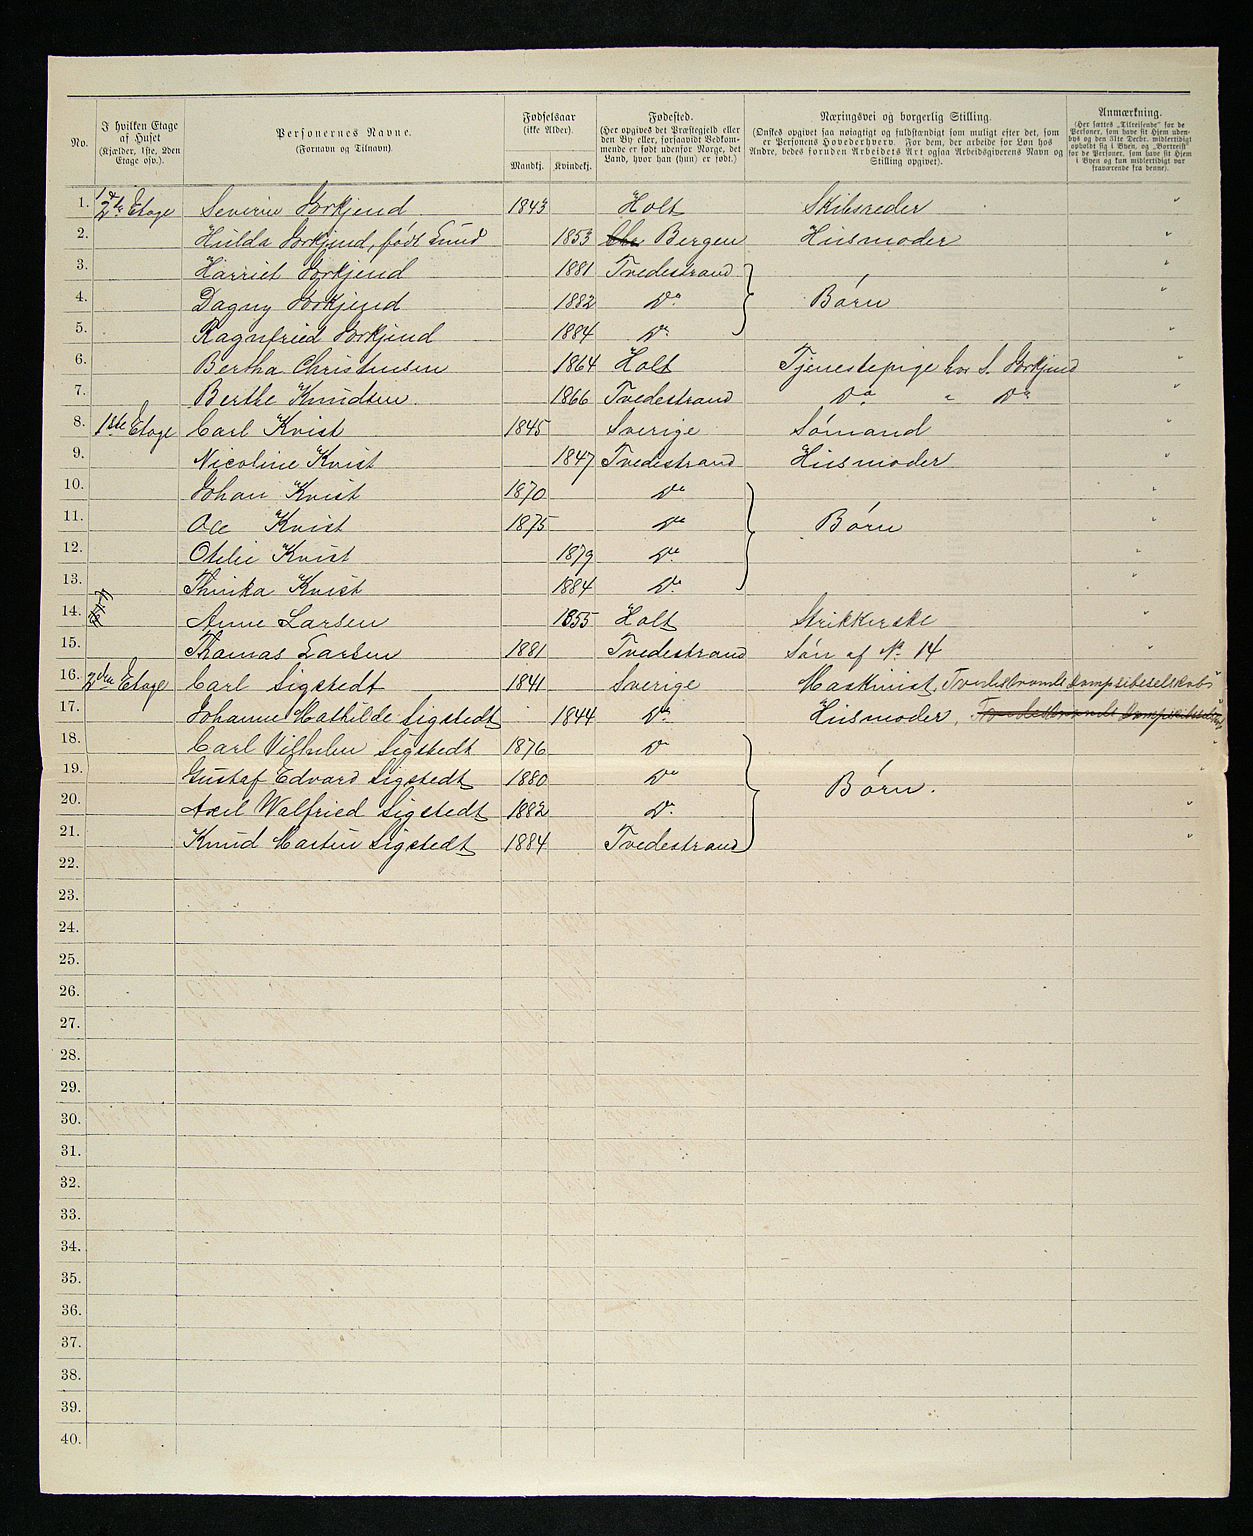 No. | I hvilken Etage af Huset (Kjælder, 1ste, 2den Etage osv.). | Personernes Navne. (Fornavn og Tilnavn). | Fødselsaar (ikke Alder). Mandkj. | Kvindekj. | Fødested. (Her opgives det Præstegjeld eller den By eller, forsaavidt Vedkommende er født udenfor Norge, det Land, hvor han (hun) er født.) | Næringsvei og borgerlig Stilling. (Ønskes opgivet saa nøiagtigt og fuldstændigt som muligt efter det, som er Personens Hovederhverv. For dem, der arbeide for Løn hos Andre, bedes foruden Arbeidets Art ogsaa Arbeidsgiverens Navn og Stilling opgivet). | Anmærkning. (Her sættes „Tilreisende" for de Personer, som have sit Hjem udenbys og den 31te Decbr. midlertidigt opholdt sig i Byen, og „Bortreist" for de Personer, som have sit Hjem i Byen og kun midlertidigt var fraværende fra denne).
1. Etage Severin 1843 Holt Skibsreder "
2. Hulda født Lund 1853 Bergen Husmoder "
3. Harriet 1881 Tvedestrand "
4. Dagny 1882 Do Børn "
5. Ragnfried 1884 Do "
6. Bertha Christensen 1864 Holt Tjenestepige hos S. "
7. Berthe Knudsen 1866 Tvedestrand Do " Do "
8. 1ste Etage Carl Kvist 1845 Sverige Sømand "
9. Nicoline Kvist 1847 Tvedestrand Husmoder "
10. Johan Kvist 1870 Do "
11. Kvist 1875 Do Børn "
12. Otelie Kvist 1879 Do "
13. Kvist 1884 Do "
14. Anne Larsen 1855 Holt Strikkerske "
15. Thomas Larsen 1881 Tvedestrand Søn af No 14 "
16. 2den Etage Carl Sigstedt 1841 Sverige Maskinist, "
17. Johanne Mathilde Sigstedt 1844 Do Husmoder, "
18. Carl Vilhelm Sigstedt 1876 Do "
19. Gustaf Edvard Sigstedt 1880 Do Børn. "
20. Axel Walfried Sigstedt 1882 Do "
21. Knud Martin Sigstedt 1884 Tvedestrand "
22.
23.
24.
25.
26.
27.
28.
29.
30.
31.
32.
33.
34.
35.
36.
37.
38.
39.
40.